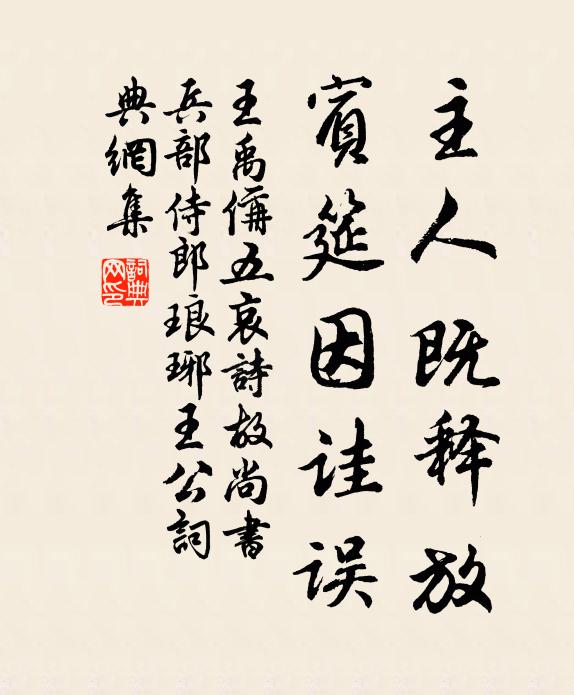 主人既释放
賓筵因诖误
王禹偁五哀詩故尚書
兵部侍郎琅琊王公詞
典網集
詞典網印